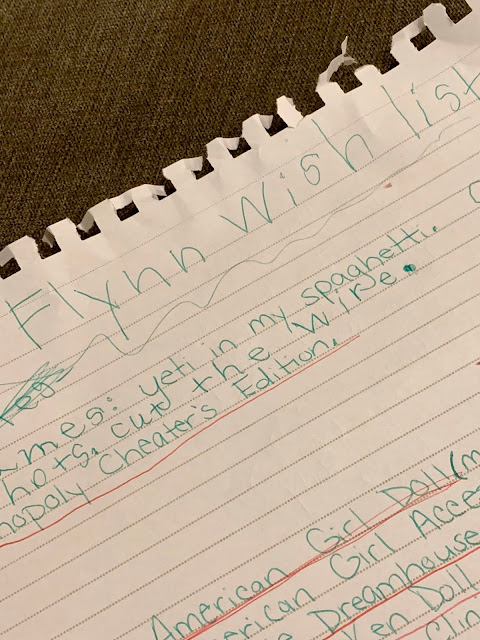 Flynn Wish list
ames: yeti in my spaghetti.
hots, cut the Wire.
nopoly Cheater's Edition.
American Girl Doll (m
erican Girl Acce
e Dreamhouse
Ken Doll
Clin